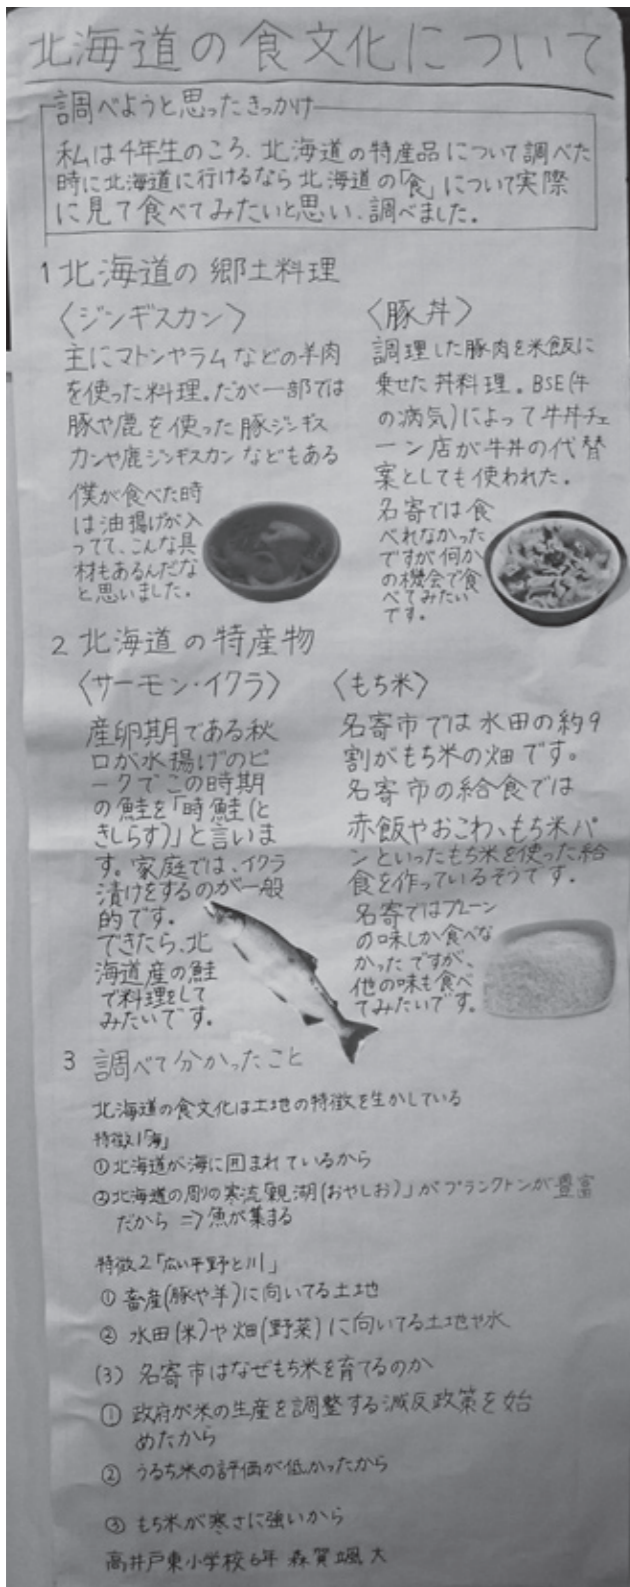 北海道の食文化について
調べようと思ったきっかけ
私は4年生のころ、北海道の特産品について調べた
時に北海道に行けるなら北海道の「食」について実際
に見て食べてみたいと思い、調べました。
1 北海道の郷土料理
〈ジンギスカン〉
主にマトンやラムなどの羊肉
を使った料理。だが一部では
豚や鹿を使った豚ジンギス
カンや鹿ジンギスカンなどもある
僕が食べた時
は油揚げが入
ってて、こんな具
材もあるんだな
と思いました。
〈豚丼〉
調理した豚肉を米飯に
乗せた丼料理。BSE(牛
の病気)によって牛丼チェ
ーン店が牛丼の代替
案としても使われた。
名寄では食
べれなかった
ですが何か
の機会で食
べてみたい
です。
2 北海道の特産物
〈サーモン・イクラ〉
産卵期である秋
口が水揚げのピ
ークでこの時期
の鮭を「時鮭(と
きしらず)」と言いま
す。家庭では、イクラ
漬けをするのが一般
的です。
できたら、北
海道産の鮭
で料理をして
みたいです。
〈もち米〉
名寄市では水田の約9
割がもち米の畑です。
名寄市の給食では
赤飯やおこわ、もち米パ
ンといったもち米を使った給
食を作っているそうです。
名寄ではプレーン
の味しか食べな
かったですが、
他の味も食べ
てみたいです。
3 調べて分かったこと
北海道の食文化は土地の特徴を生かしている
特徴1「海」
①北海道が海に囲まれているから
②北海道の周りの寒流「親湖(おやしお)」がプランクトンが豊富
だから ⇒魚が集まる
特徴2「広い平野と川」
① 畜産(豚や羊)に向いてる土地
② 水田(米)や畑(野菜)に向いてる土地や水
(3) 名寄市はなぜもち米を育てるのか
① 政府が米の生産を調整する減反政策を始
めたから
② うるち米の評価が低かったから
③ もち米が寒さに強いから
高井戸東小学校6年 森賀颯大